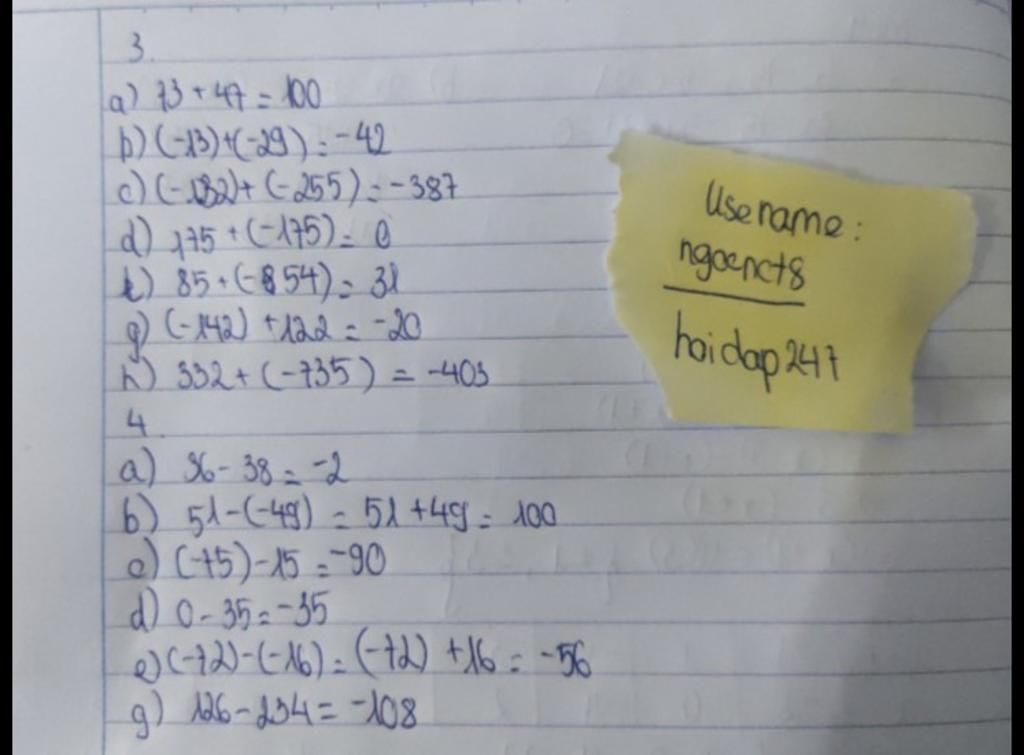 3.
a) 73 + 47 = 100
b) (-13)+(-29) = -42
c) (-132)+ (-255) = -387
d) 175 + (-175) = 0
e) 85 + (-54) = 31
g) (-142) +122 = -20
h) 332 + (-735) = -403
4
a) 36 - 38 = -2
b) 51-(-49) = 51 +49 = 100
c) (-75) -15 = -90
d) 0 - 35 = -35
e) (-72)-(-16) = (-72) +16 = -56
g) 126 - 234 = -108
Usename:
ngocnct8
hoidap247